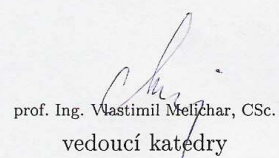 prof. Ing. Vlastimil Melichar, CSc.
vedoucí katedry